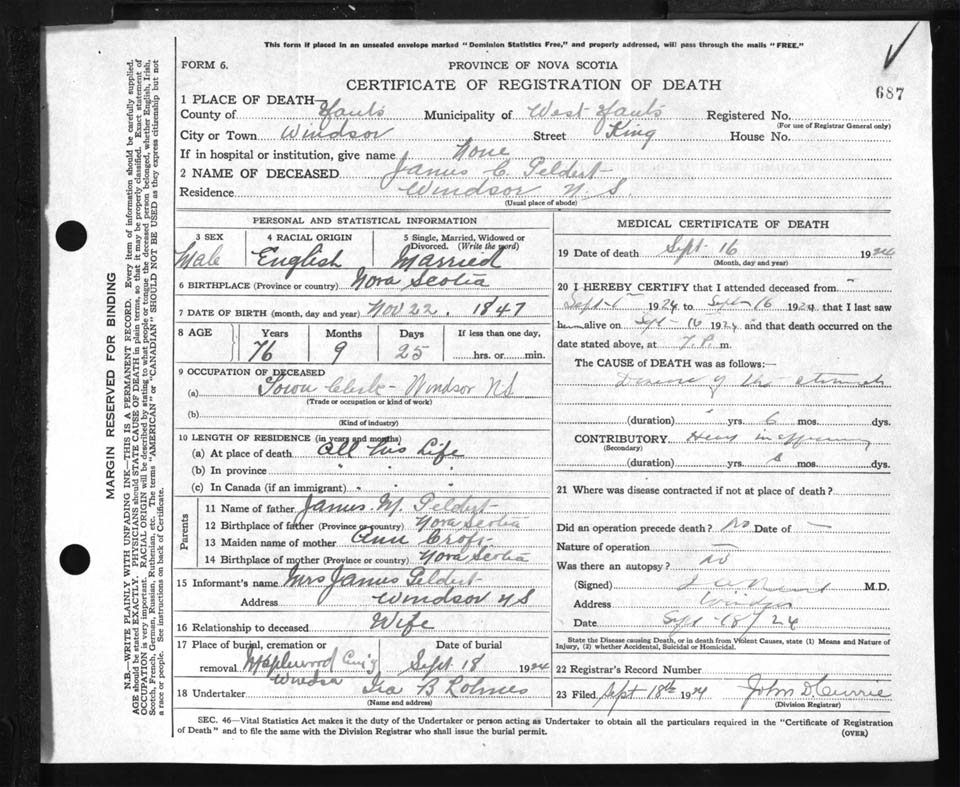 This form if placed in an unsealed envelope marked "Dominion Statistics Free," and properly addressed, will pass through the mails "FREE."
FORM 6.
PROVINCE OF NOVA SCOTIA
CERTIFICATE OF REGISTRATION OF DEATH
687
1 PLACE OF DEATH—
County of Hants Municipality of West Hants Registered No.
(For use of Registrar General only)
City or Town Windsor Street King House No.
If in hospital or institution, give name None
2 NAME OF DECEASED James C. Geldert
Residence Windsor N S.
(Usual place of abode)
PERSONAL AND STATISTICAL INFORMATION
3 SEX 4 RACIAL ORIGIN 5 Single, Married, Widowed or Divorced. (Write the word)
Male English Married
6 BIRTHPLACE (Province or country) Nova Scotia
7 DATE OF BIRTH (month, day and year) Nov 22. 1847
8 AGE Years Months Days If less than one day,
76 9 25 hrs. or min.
9 OCCUPATION OF DECEASED
(a) Town Clerk - Windsor NS
(Trade or occupation or kind of work)
(b)
(Kind of industry)
10 LENGTH OF RESIDENCE (in years and months)
(a) At place of death All his Life
(b) In province " " "
(c) In Canada (if an immigrant) " " "
Parents
11 Name of father James. M. Geldert
12 Birthplace of father (Province or country) Nova Scotia
13 Maiden name of mother Ann Croft
14 Birthplace of mother (Province or country) Nova Scotia
15 Informant's name Mrs James Geldert
Address Windsor NS
16 Relationship to deceased Wife
17 Place of burial, cremation or removal Date of burial
Maplewood Windsor Sept 18 1924
18 Undertaker Ira B Lohnes
(Name and address)
MEDICAL CERTIFICATE OF DEATH
19 Date of death Sept 16 1924
(Month, day and year)
20 I HEREBY CERTIFY that I attended deceased from
Sept 1924 to Sept 16 1924 that I last saw
him alive on Sept 16 1924 and that death occurred on the
date stated above, at 7. P. m.
The CAUSE OF DEATH was as follows:
Disease of the stomach
(duration) yrs. 6 mos. dys.
CONTRIBUTORY
(Secondary)
(duration) yrs. mos. dys.
21 Where was disease contracted if not at place of death?
Did an operation precede death? No Date of —
Nature of operation —
Was there an autopsy? no
(Signed) M.D.
Address Windsor
Date Sept 18/24
State the Disease causing Death, or in death from Violent Causes, state (1) Means and Nature of
Injury, (2) whether Accidental, Suicidal or Homicidal.
22 Registrar's Record Number
23 Filed Sept 18th 1924 John D. Currie
(Division Registrar)
SEC. 46—Vital Statistics Act makes it the duty of the Undertaker or person acting as Undertaker to obtain all the particulars required in the "Certificate of Registration
of Death" and to file the same with the Division Registrar who shall issue the burial permit.
(OVER)
MARGIN RESERVED FOR BINDING
N.B.—WRITE PLAINLY WITH UNFADING INK—THIS IS A PERMANENT RECORD. Every item of information should be carefully supplied.
AGE should be stated EXACTLY. PHYSICIANS should STATE CAUSE OF DEATH in plain terms, so that it may be properly classified. Exact statement of
OCCUPATION is very important. RACIAL ORIGIN will be described by stating to what people or tongue the deceased person belonged, whether English, Irish,
Scotch, French, German, Russian, Ruthenian, etc. The terms "AMERICAN" or "CANADIAN" SHOULD NOT BE USED as they express citizenship but not
a race or people. See instructions on back of Certificate.